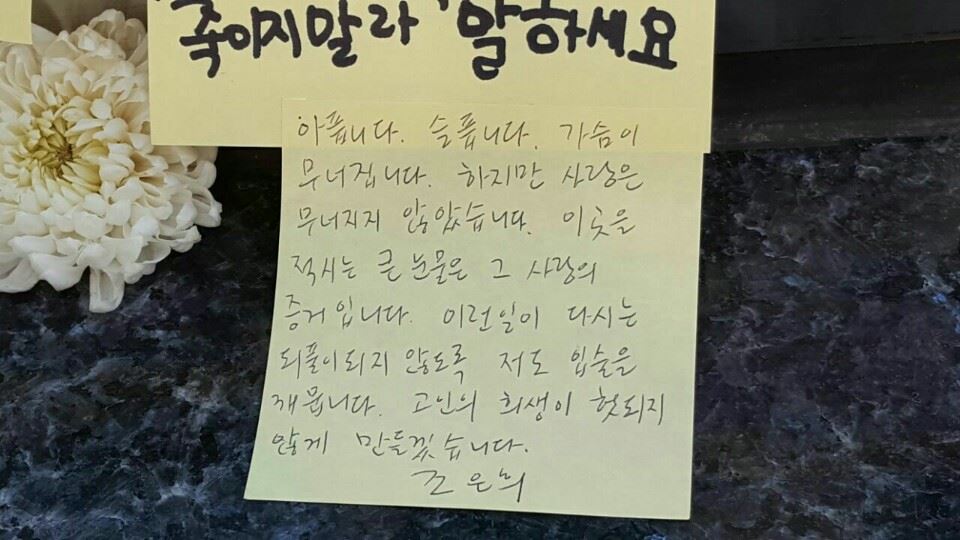 죽이지말라" 말하세요
아픕니다. 슬픕니다. 가슴이
무너집니다. 하지만 사랑은
무너지지 않았습니다. 이곳을
적시는 큰 눈물은 그 사랑의
증거입니다. 이런일이 다시는
되풀이되지 않도록 저도 입술을
깨뭅니다. 고인의 희생이 헛되지
않게 만들겠습니다.
조은희